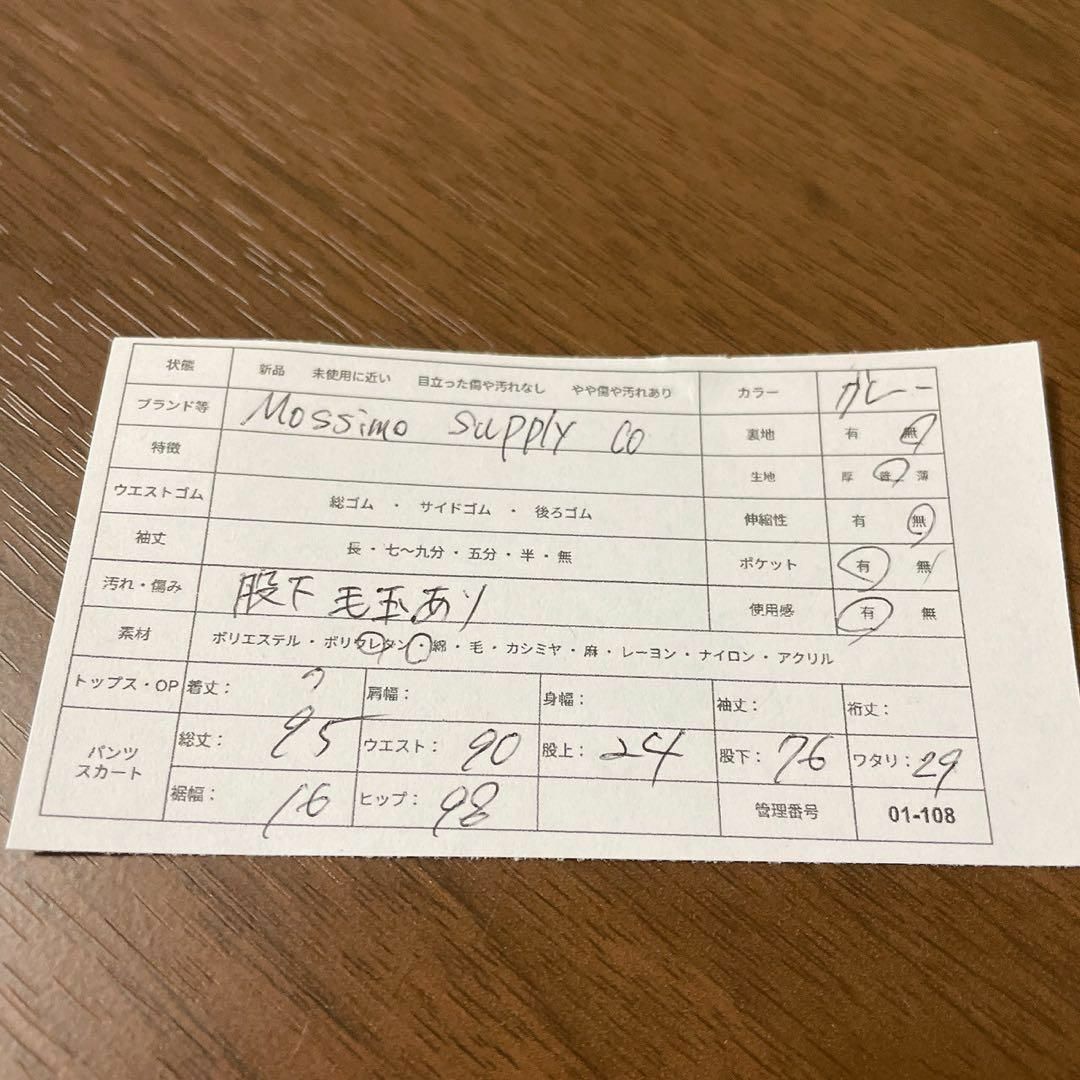 状態 新品 未使用に近い 目立った傷や汚れなし やや傷や汚れあり カラー グレー
ブランド等 Mossimo Supply Co 裏地 有 無
特徴 生地 厚 普 薄
ウエストゴム 総ゴム ・ サイドゴム ・ 後ろゴム 伸縮性 有 無
袖丈 長・七〜九分・五分・半・無 ポケット 有 無
汚れ・傷み 股下 毛玉あり 使用感 有 無
素材 ポリエステル・ポリウレタン・綿・毛・カシミヤ・麻・レーヨン・ナイロン・アクリル
トップス・OP 着丈: 肩幅: 身幅: 袖丈: 裄丈:
パンツ スカート 総丈: 95 ウエスト: 90 股上: 24 股下: 76 ワタリ: 29
裾幅: 16 ヒップ: 98 管理番号 01-108